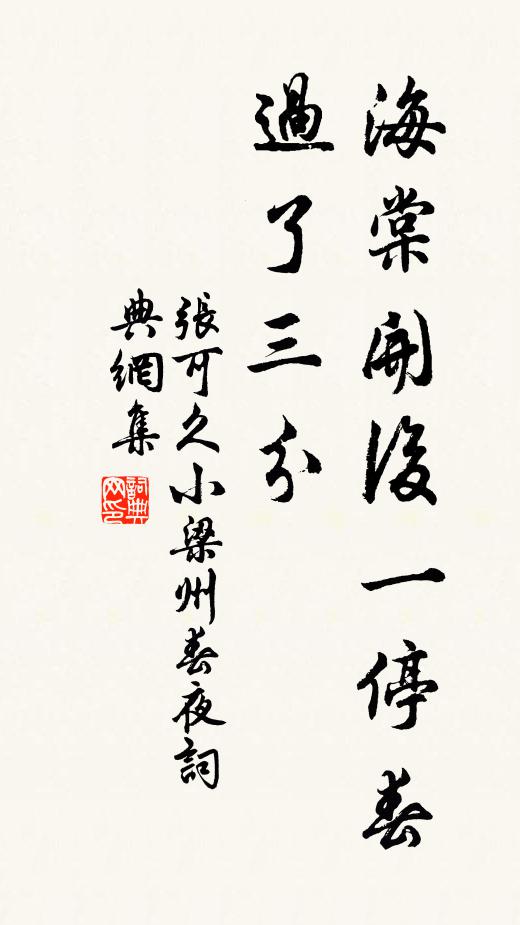 海棠開後一停春
過了三分
張可久小梁州春夜詞
典網集
詞典網印